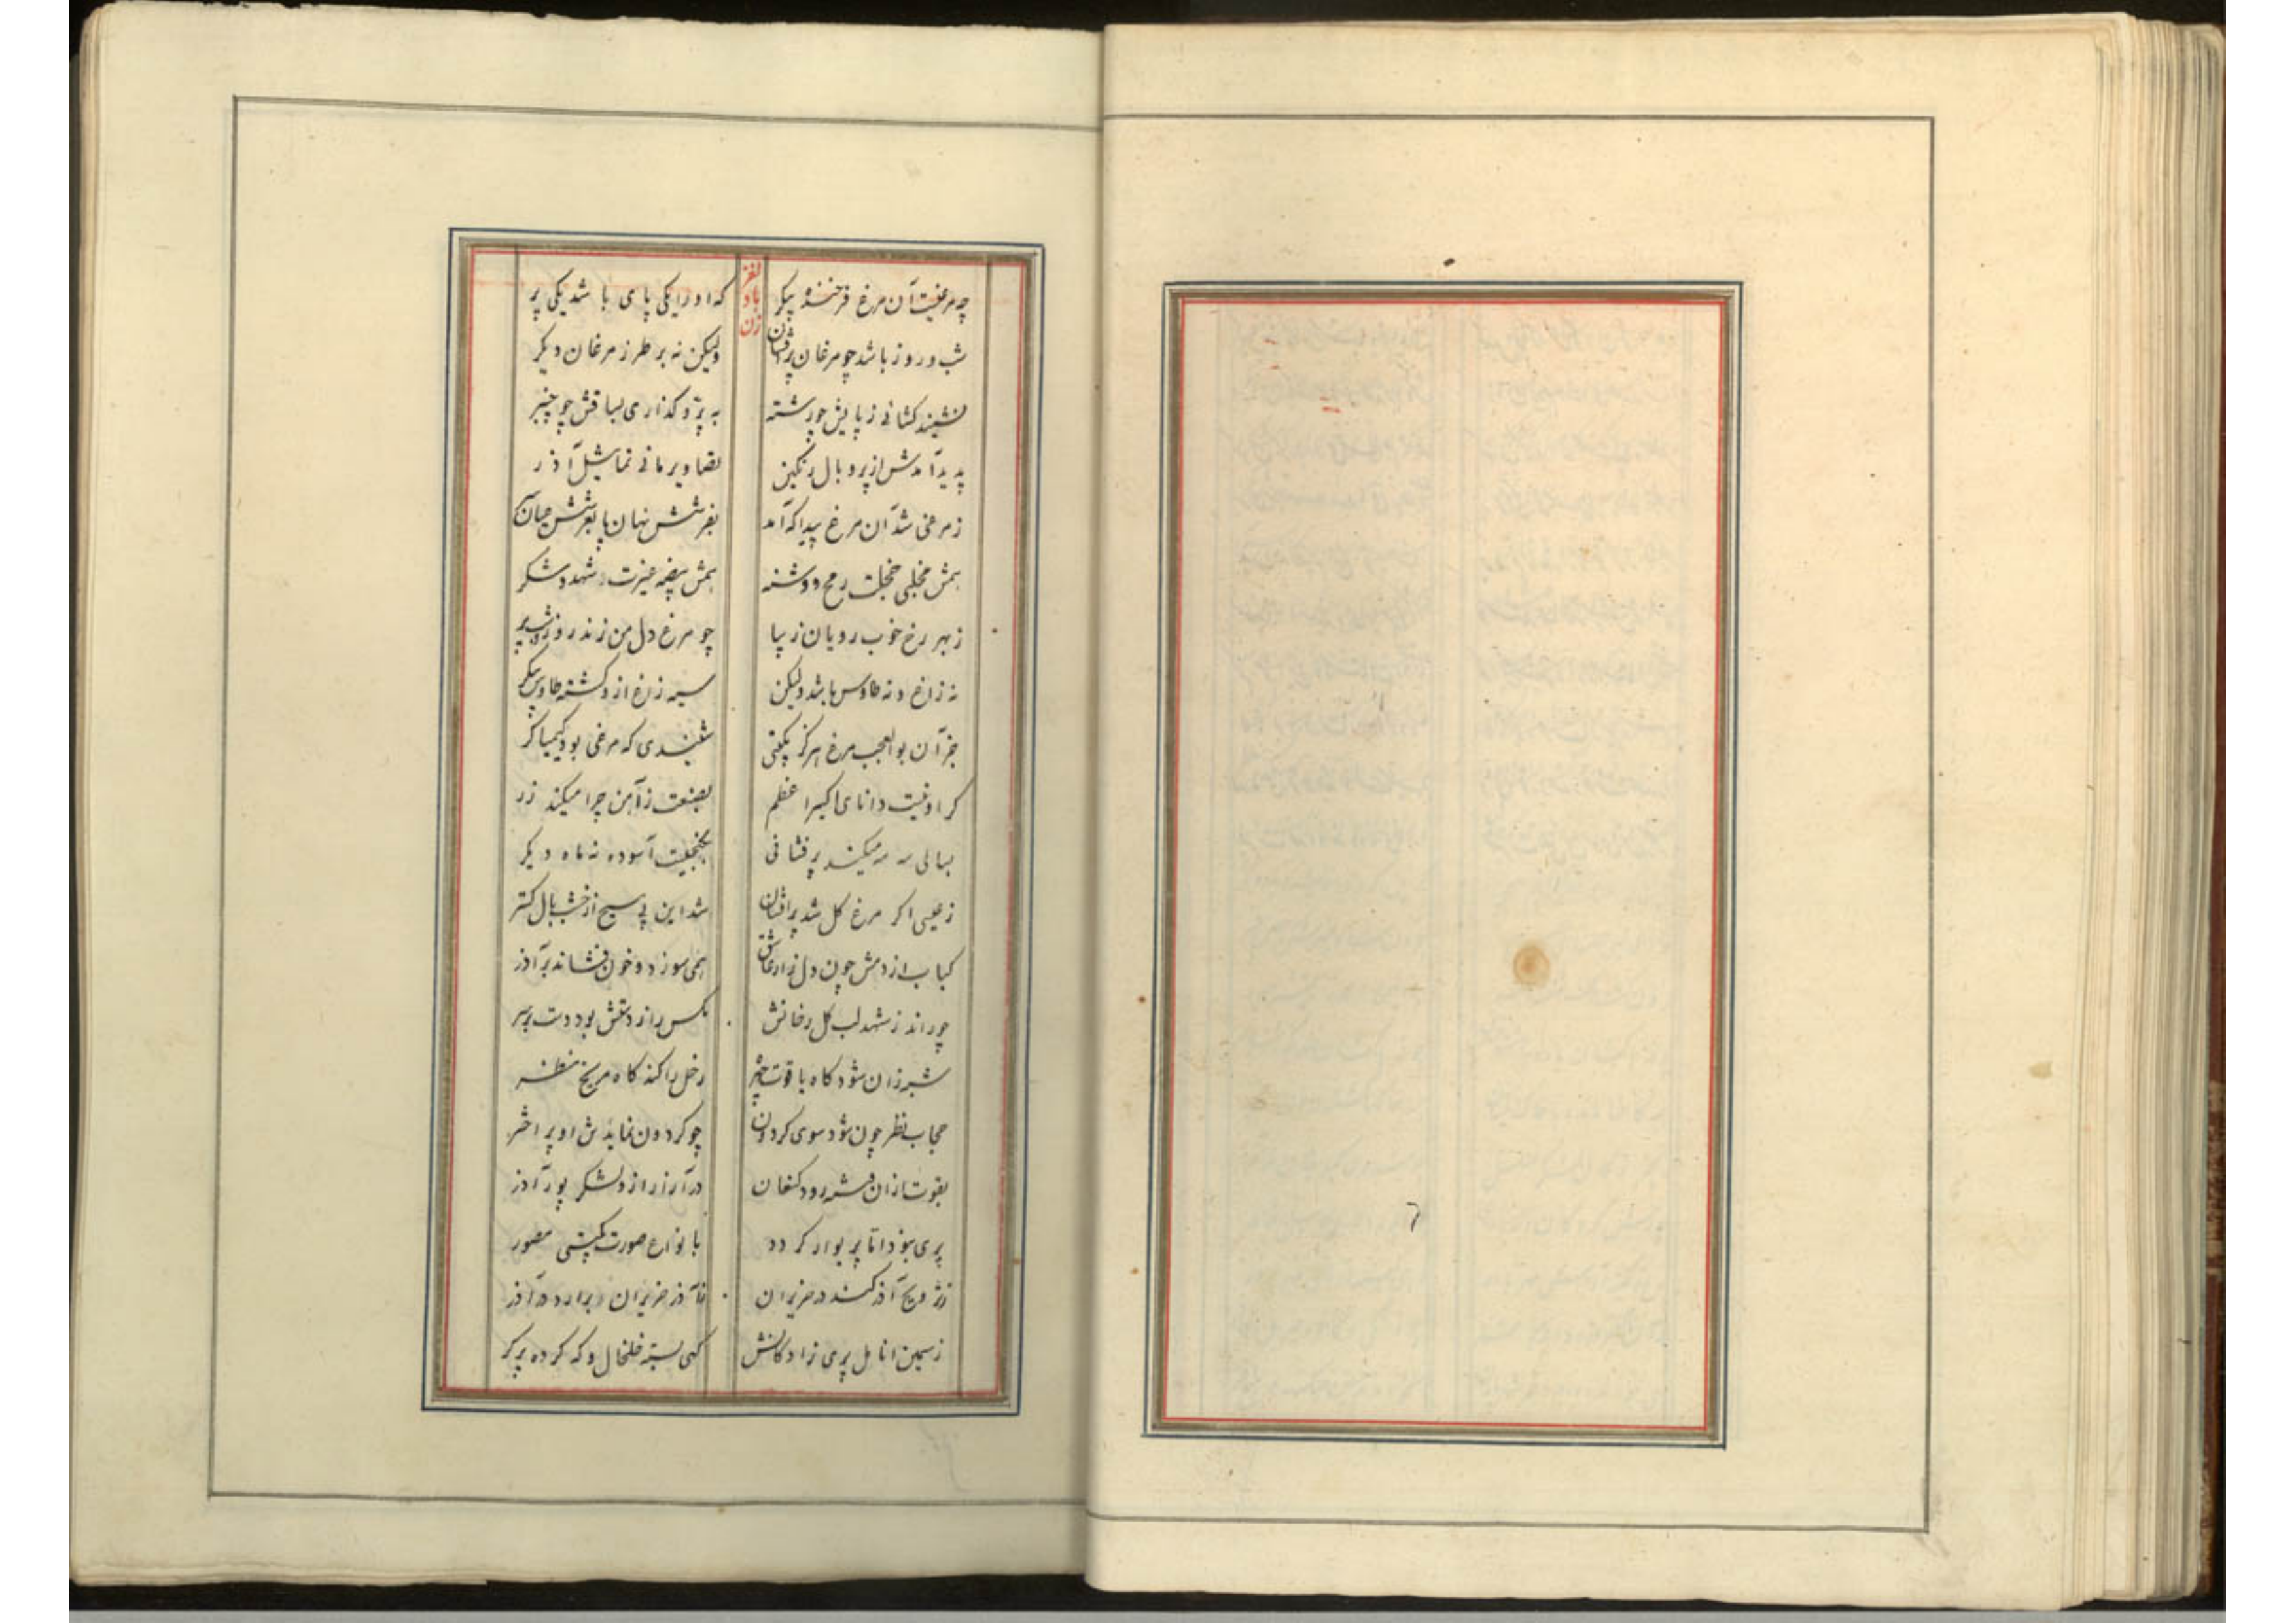 لغز باد زن
چه مرغیست آن مرغ فرخنده پیکر که او را یکی پای باشد یکی پر
شب و روز باشد چو مرغان پرفشان ولیکن نه بر طرز مرغان دیکر
نشیند کشائی ز پایش چو رشته به پرد کذاری بساقش چو چنبر
پدید آمدش از پر و بال رنکین تصاویر مانی تماثیل آذر
ز مرغی شد آن مرغ پیدا که آمد بفرشش نهان پا بعرشش
بمش مخلبی خجلت رمح و دشنه بمش بیضه غیرت شهد و شکر
ز بهر رخ خوب رویان زیبا چو مرغ دل من زند روز و شب پر
نه زاغ و نه طاوس باشد ولیکن سیه زاغ از و کشته طاوس پیکر
جز آن بوالعجب مرغ هرکز بکیتی شنیدی که مرغی بود کیمیاکر
کر او نیست دانای اکسیر اعظم بصنعت ز آهن چرا میکند زر
بسالی سه مه میکند پرفشانی بکنجیست آسوده نه ماه دیکر
ز عیسی اکر مرغ کل شد پرافشان شد این بی مسیح از خشب بال کستر
کباب از دمش چون دل زار عاشق همی سوزد و خون فشاند بر آذر
چو راند ز شهد لب کلرخانش مکس را ز دستش بود دست بر سر
شبر زان شود کاه با قوت زحل را کند کاه مریخ منظر
حجاب نظر چون شود سوی کردون چو کردون نمایدش او پر اختر
بقوت ازان رود کنعان در آزر ازو لشکر پور آذر
پری بود اما پریوار کردد با نواع صورت بکیتی مصور
ز ترویح آذر کند در حزیران نه آذر حزیران برارد در آذر
ز سیمین انامل پری زادکانش کهی بسته خلخال و که کرده پرکر